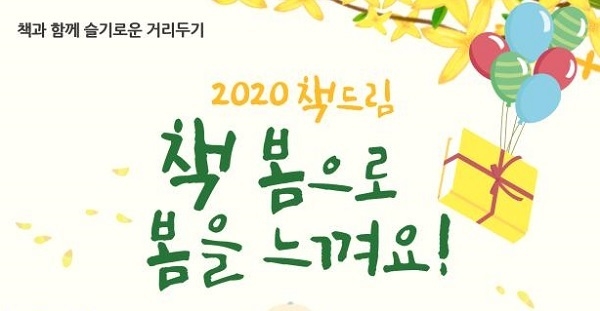 책과 함께 슬기로운 거리두기
2020 책드림
책 봄으로
봄을 느껴요!